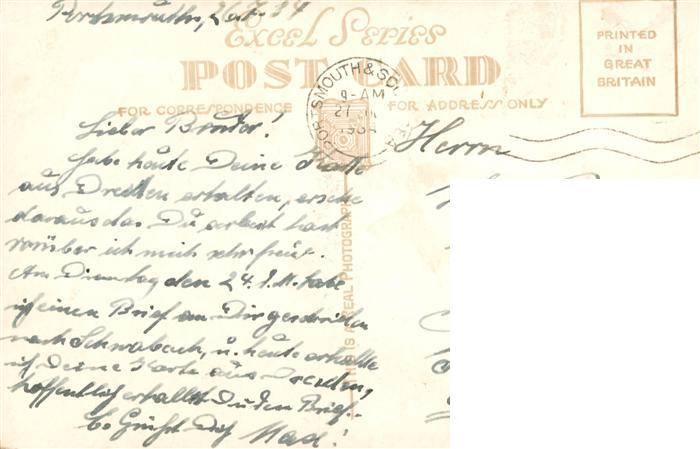 Portsmouth, 26.7.34
Excel Series
POST CARD
FOR CORRESPONDENCE
FOR ADDRESS ONLY
PRINTED
IN
GREAT
BRITAIN
PORTSMOUTH & SOU
9-AM
27
1934
THIS IS A REAL PHOTOGRAPH
Lieber Bruder!
Habe heute Deine Karte
aus Dresden erhalten, ersehe
daraus das Du arbeit hast
worüber ich mich sehr freue.
Am Dienstag den 24. d. M. habe
ich einen Brief an Dir geschrieben
nach Schwabach, u. heute erhalte
ich Deine Karte aus Dresden,
hoffentlich erhallst Du den Brief.
Es Grüßt Dich Max!
Herrn